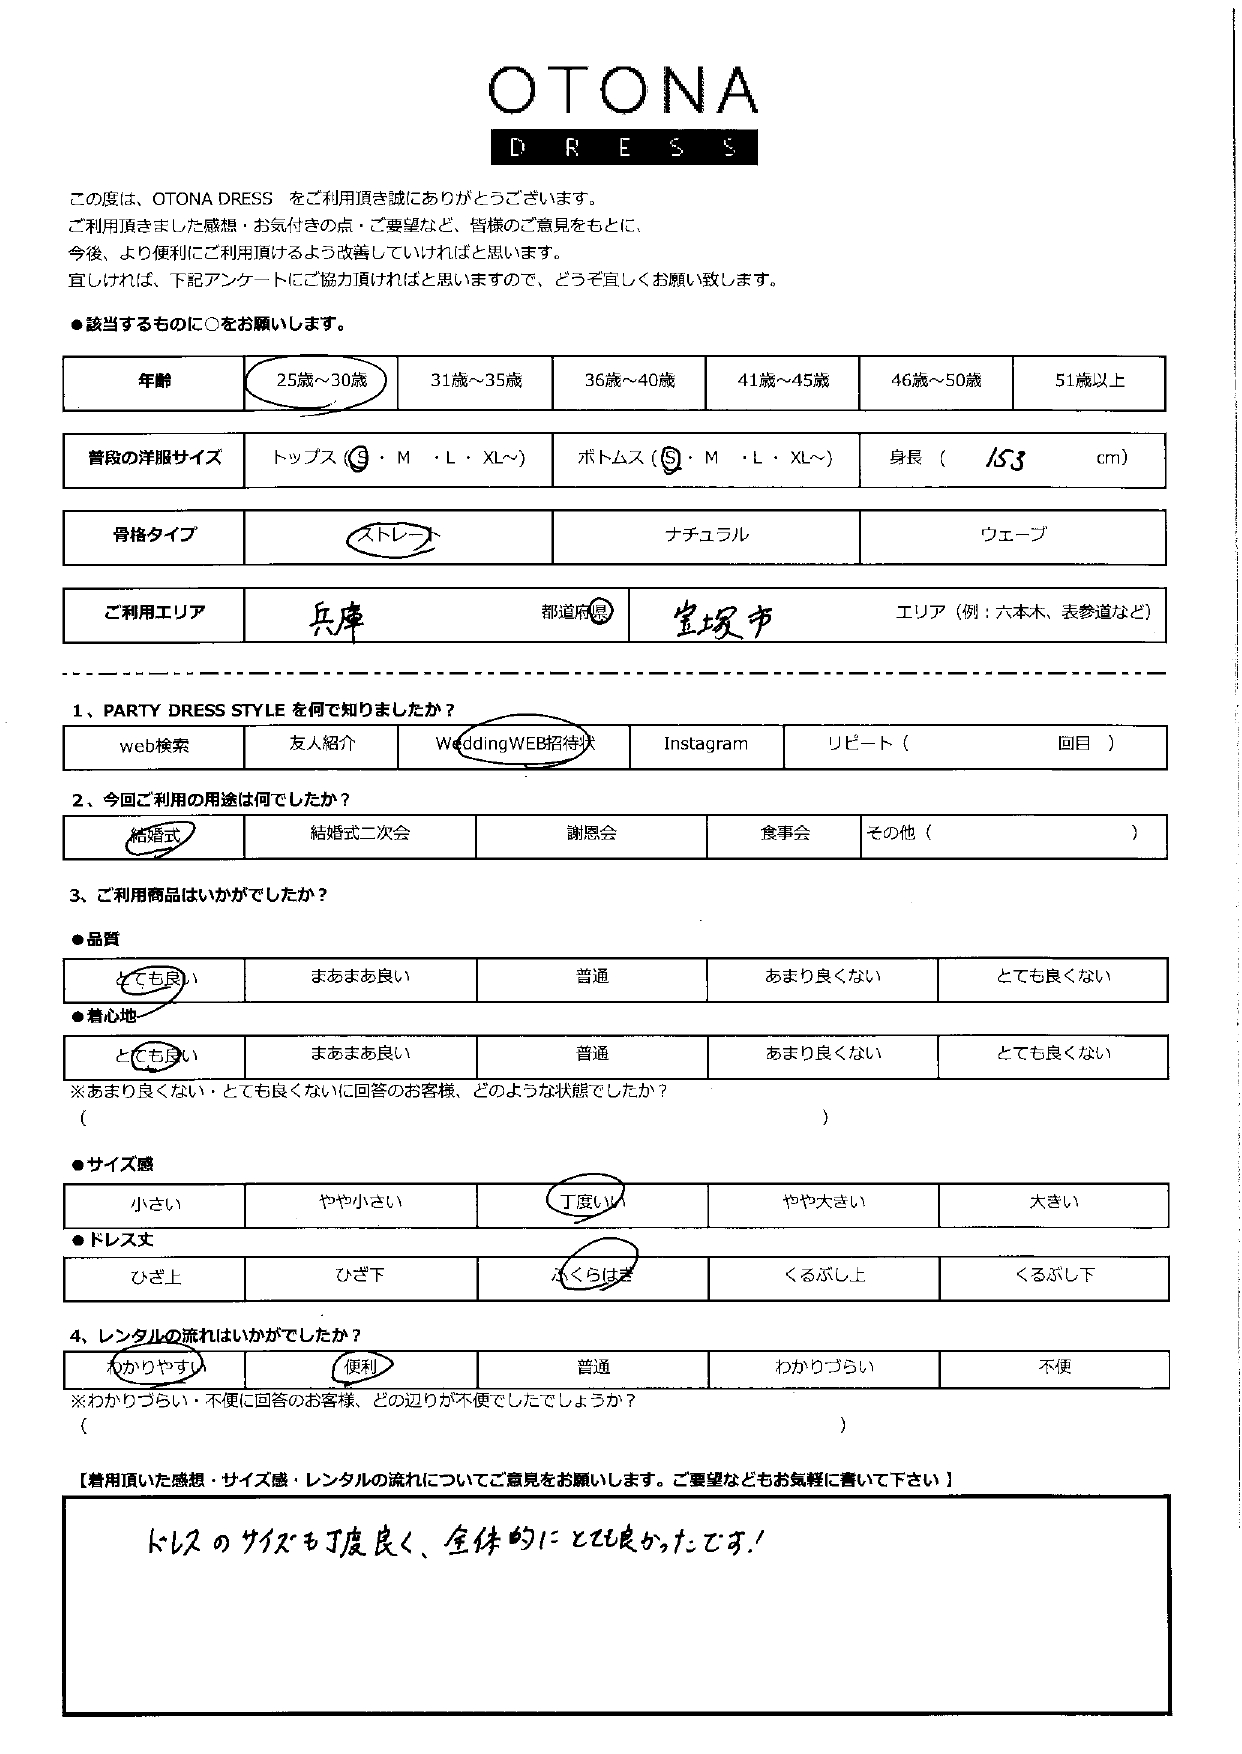 OTONA
DRESS
この度は、OTONA DRESS をご利用頂き誠にありがとうございます。
ご利用頂きました感想・お気付きの点・ご要望など、皆様のご意見をもとに、
今後、より便利にご利用頂けるよう改善していければと思います。
宜しければ、下記アンケートにご協力頂ければと思いますので、どうぞ宜しくお願い致します。
●該当するものに○をお願いします。
年齢 25歳～30歳 31歳～35歳 36歳～40歳 41歳～45歳 46歳～50歳 51歳以上
普段の洋服サイズ トップス (S ・ M ・L ・ XL～) ボトムス (S ・ M ・L ・ XL～) 身長 ( 153 cm)
骨格タイプ ストレート ナチュラル ウェーブ
ご利用エリア 兵庫 都道府県 宝塚市 エリア（例：六本木、表参道など）
1、PARTY DRESS STYLE を何で知りましたか？
web検索 友人紹介 WeddingWEB招待状 Instagram リピート（ 回目 ）
2、今回ご利用の用途は何でしたか？
結婚式 結婚式二次会 謝恩会 食事会 その他（ ）
3、ご利用商品はいかがでしたか？
●品質
とても良い まあまあ良い 普通 あまり良くない とても良くない
●着心地
とても良い まあまあ良い 普通 あまり良くない とても良くない
※あまり良くない・とても良くないに回答のお客様、どのような状態でしたか？
（ ）
●サイズ感
小さい やや小さい 丁度いい やや大きい 大きい
●ドレス丈
ひざ上 ひざ下 ふくらはぎ くるぶし上 くるぶし下
4、レンタルの流れはいかがでしたか？
わかりやすい 便利 普通 わかりづらい 不便
※わかりづらい・不便に回答のお客様、どの辺りが不便でしたでしょうか？
（ ）
【着用頂いた感想・サイズ感・レンタルの流れについてご意見をお願いします。ご要望などもお気軽に書いて下さい 】
ドレスのサイズも丁度良く、全体的にとても良かったです！